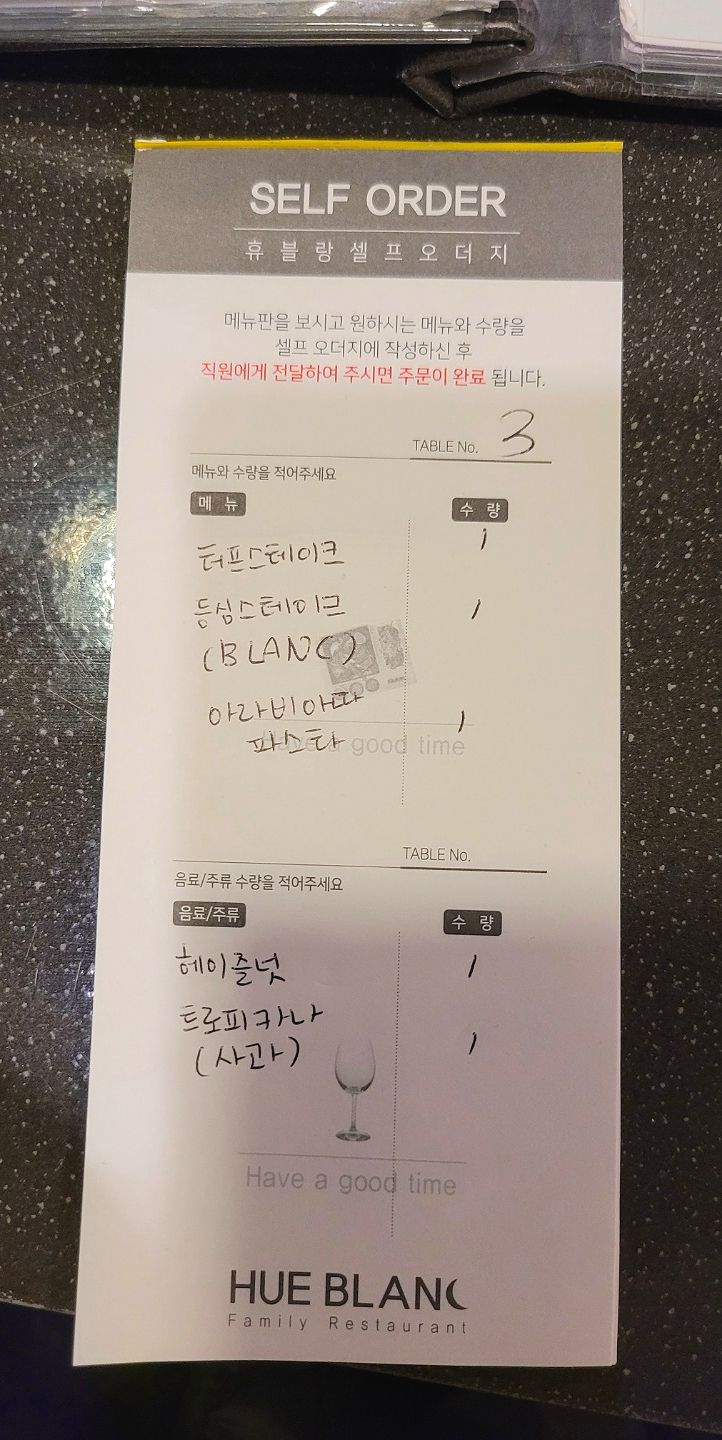 SELF ORDER
휴블랑셀프오더지
메뉴판을 보시고 원하시는 메뉴와 수량을
셀프 오더지에 작성하신 후
직원에게 전달하여 주시면 주문이 완료 됩니다.
TABLE No. 3
메뉴와 수량을 적어주세요
메 뉴 수 량
터프스테이크 1
등심스테이크 1
(BLANC)
아라비아따 1
파스타
Have a good time
TABLE No.
음료/주류 수량을 적어주세요
음료/주류 수 량
헤이즐넛 1
트로피카나
(사과) 1
Have a good time
HUE BLANC
Family Restaurant